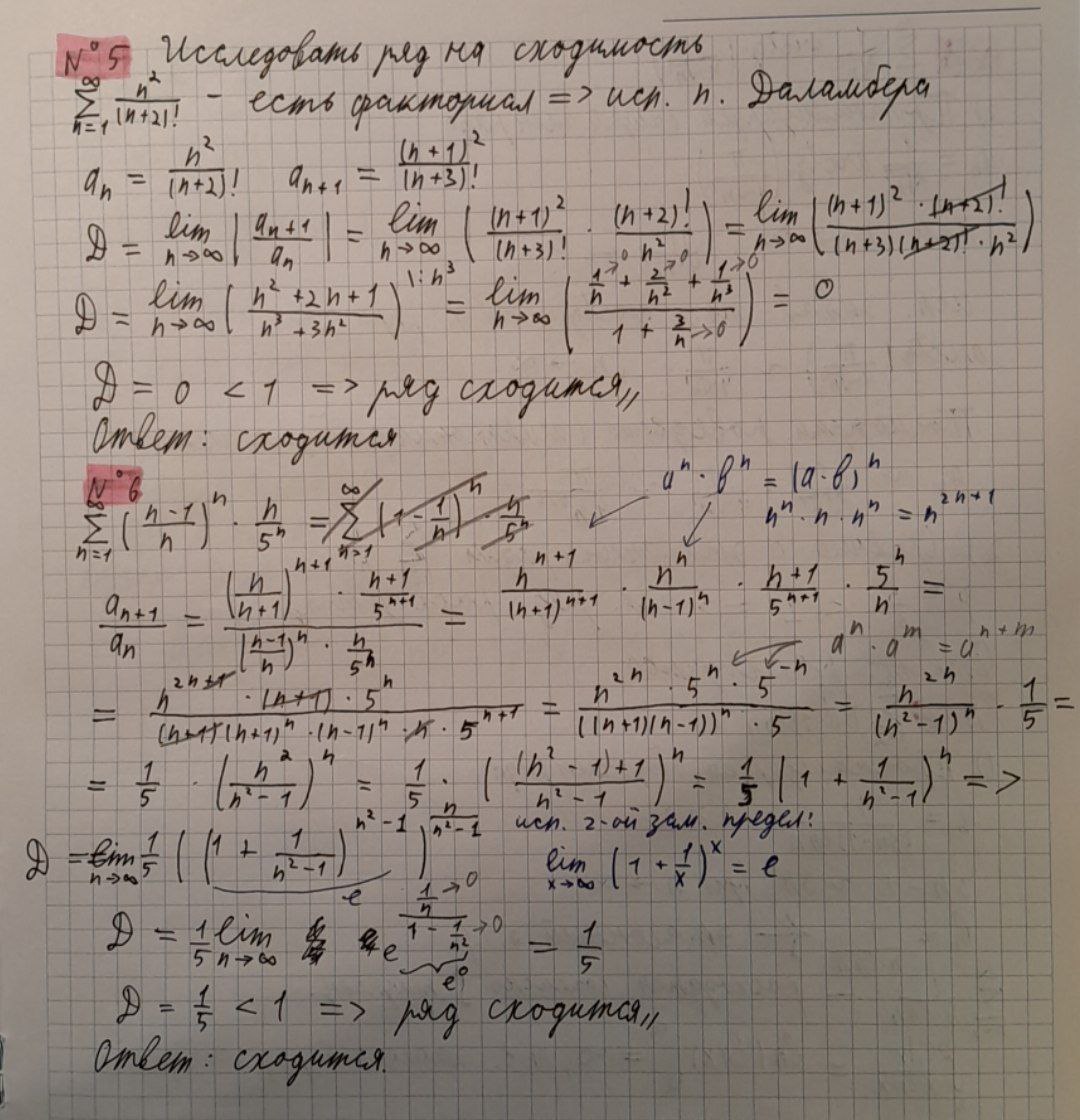 № 5 Исследовать ряд на сходимость
∑_{n=1}^{∞} n²/(n+2)! - есть факториал => исп. п. Даламбера
a_n = n²/(n+2)!   a_{n+1} = (n+1)²/(n+3)!
D = lim_{n→∞} |a_{n+1}/a_n| = lim_{n→∞} ((n+1)²/(n+3)! · (n+2)!/n²) = lim_{n→∞} ((n+1)² · (n+2)!/((n+3)(n+2)! · n²))
D = lim_{n→∞} ((n²+2n+1)/(n³+3n²)) |:n³ = lim_{n→∞} ((1/n→0 + 2/n²→0 + 1/n³→0)/(1 + 3/n→0)) = 0
D = 0 < 1 => ряд сходится,,
Ответ: сходится
№ 6
∑_{n=1}^{∞} ((n-1)/n)^n · n/5^n = ∑_{n=1}^{∞} (1 - 1/n)^n · n/5^n
a^n · b^n = (a·b)^n
n^n · n · n^n = n^{2n+1}
a_{n+1}/a_n = ((n/(n+1))^{n+1} · (n+1)/5^{n+1})/(((n-1)/n)^n · n/5^n) = n^{n+1}/(n+1)^{n+1} · n^n/(n-1)^n · (n+1)/5^{n+1} · 5^n/n =
a^n · a^m = a^{n+m}
= (n^{2n+1} · (n+1) · 5^n)/((n+1)(n+1)^n · (n-1)^n · n · 5^{n+1}) = (n^{2n} · 5^n · 5^{-n})/(((n+1)(n-1))^n · 5) = n^{2n}/(n²-1)^n · 1/5 =
= 1/5 · (n²/(n²-1))^n = 1/5 · (((n²-1)+1)/(n²-1))^n = 1/5 (1 + 1/(n²-1))^n =>
исп. 2-ой зам. предел:
D = lim_{n→∞} 1/5 ((1 + 1/(n²-1))^{n²-1})^{n/(n²-1)}   lim_{x→∞} (1 + 1/x)^x = e
e
D = 1/5 lim_{n→∞} e^{(1/n→0)/(1 - 1/n²→0)} = 1/5
e^0
D = 1/5 < 1 => ряд сходится,,
Ответ: сходится.